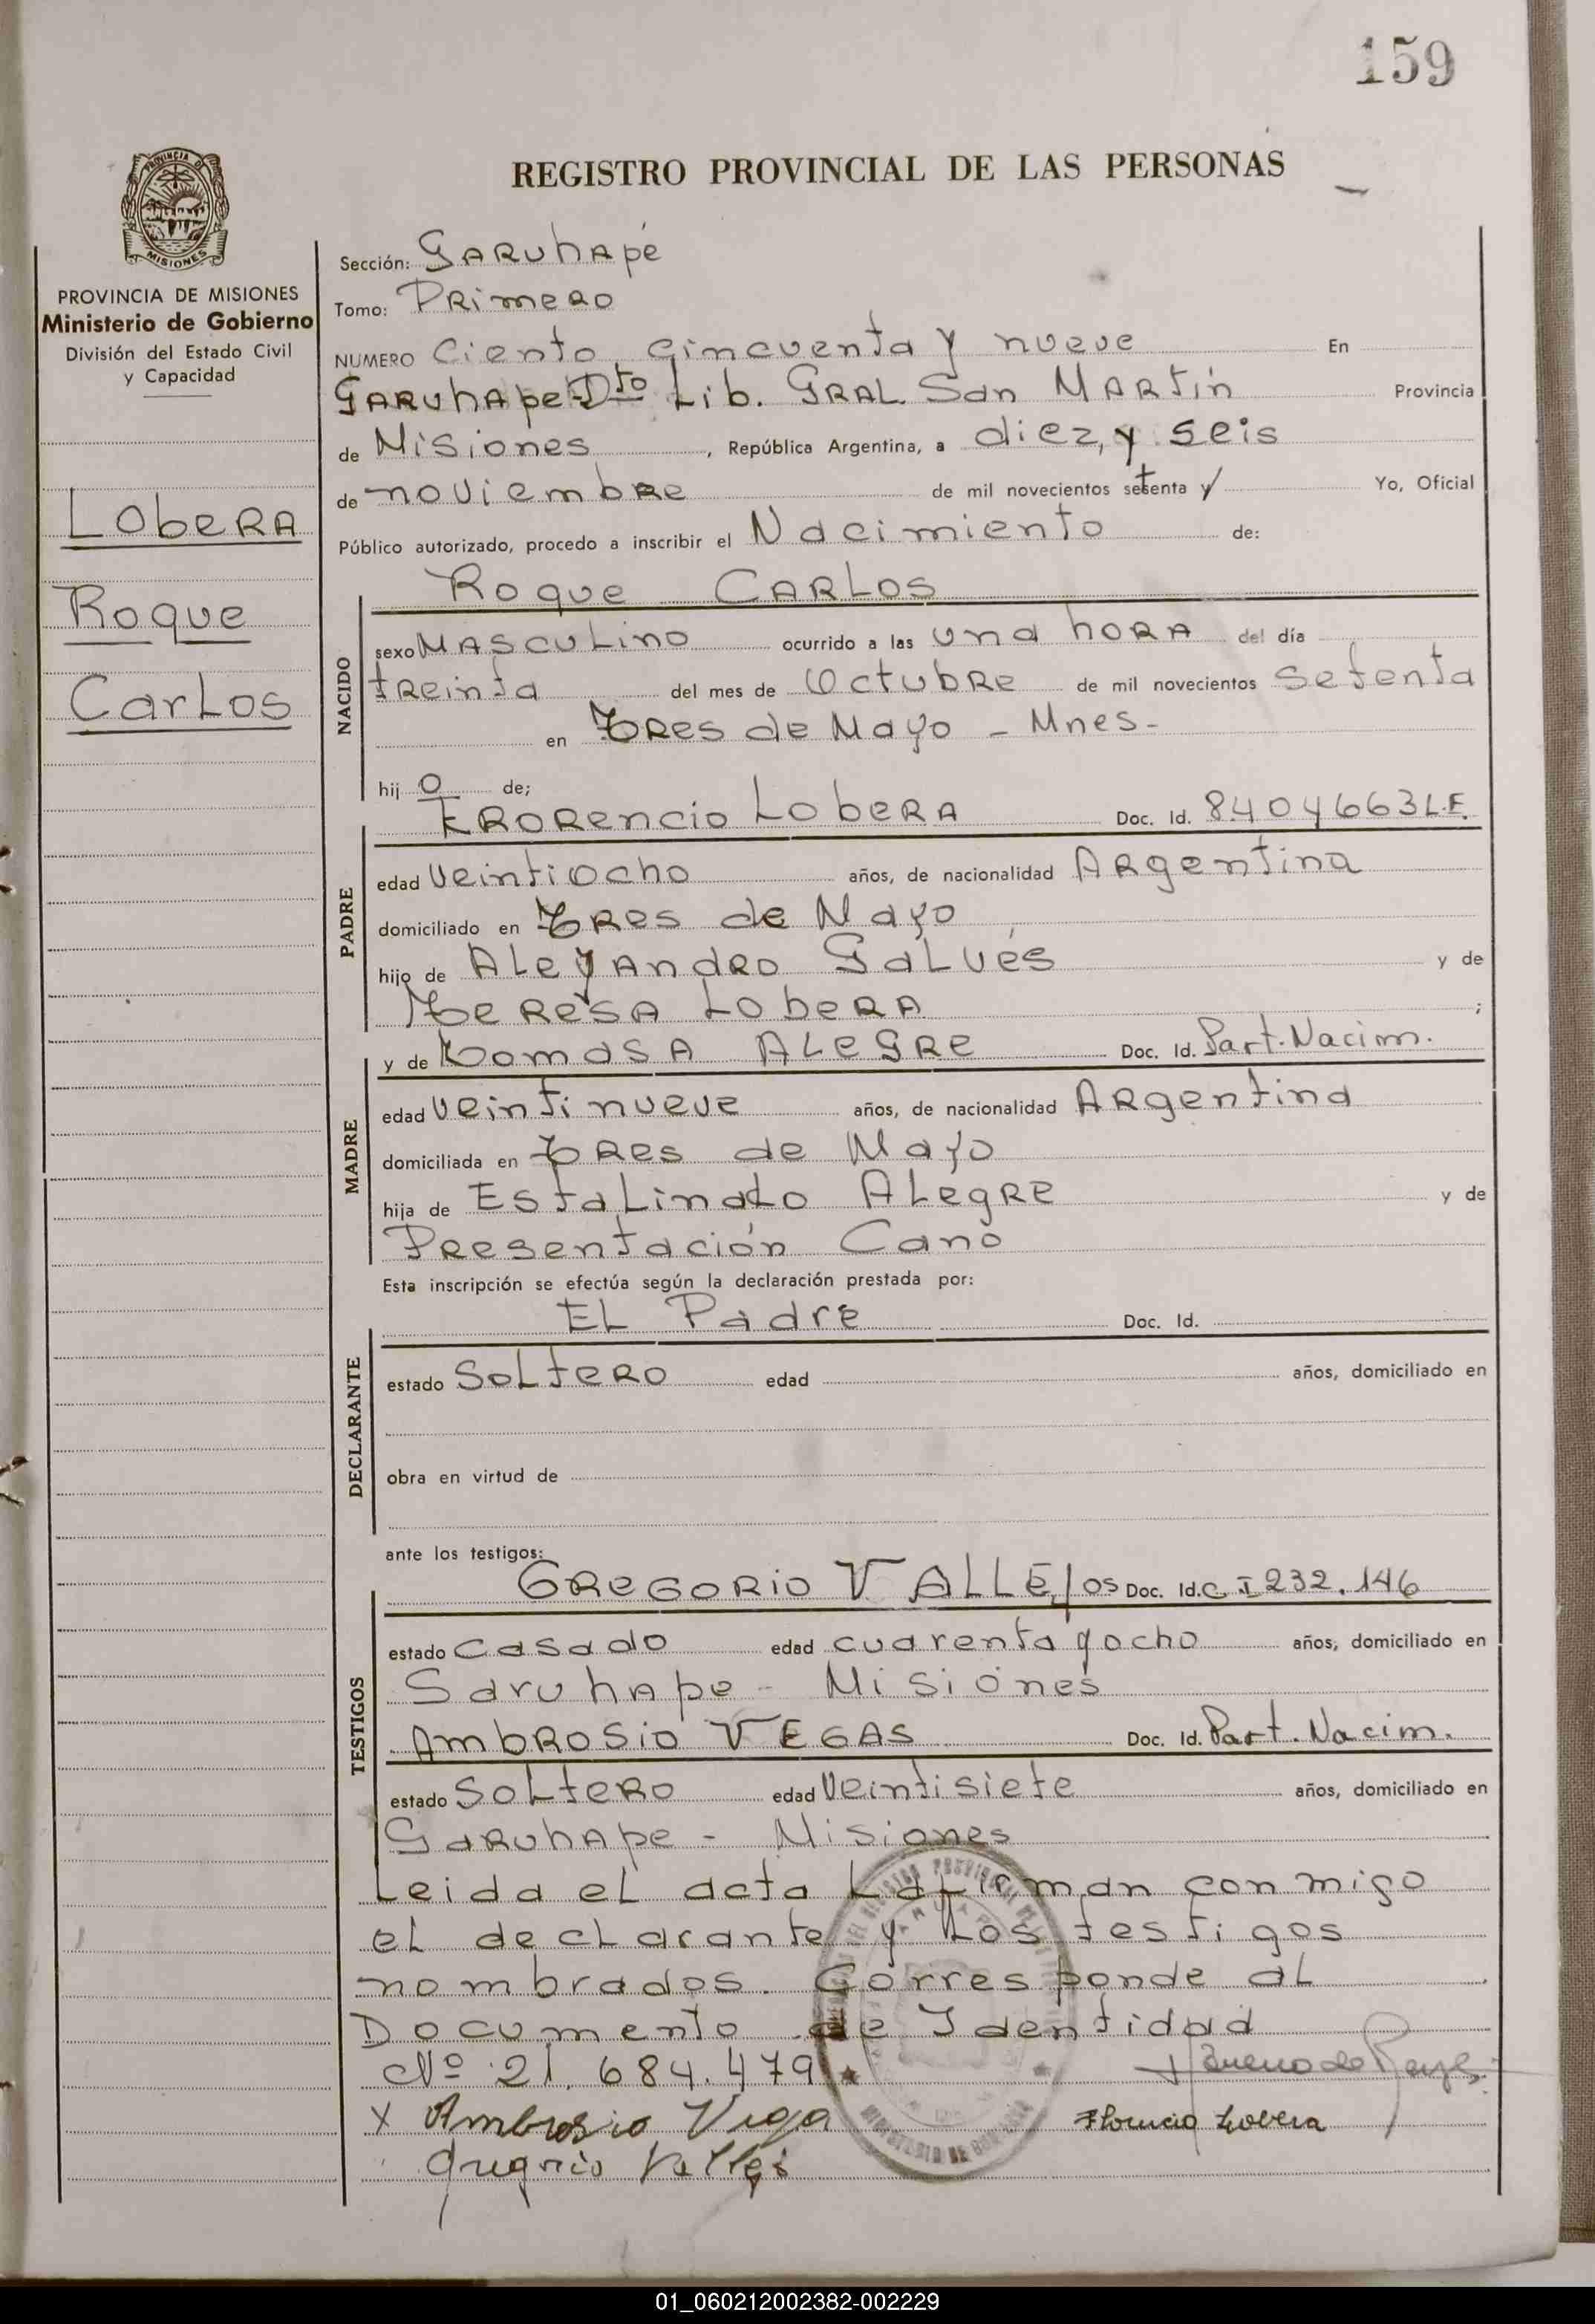 159
REGISTRO PROVINCIAL DE LAS PERSONAS
PROVINCIA DE
MISIONES
PROVINCIA DE MISIONES
Ministerio de Gobierno
División del Estado Civil
y Capacidad
Lobera
Roque
Carlos
Sección: Garuhapé
Tomo: Primero
NUMERO Ciento cincuenta y nueve En
Garuhape Dto Lib. Gral. San Martín Provincia
de Misiones, República Argentina, a diez y seis
de noviembre de mil novecientos setenta y Yo, Oficial
Público autorizado, procedo a inscribir el Nacimiento de:
Roque Carlos
NACIDO
sexo Masculino ocurrido a las una hora del día
treinta del mes de Octubre de mil novecientos setenta
en Tres de Mayo - Mnes-
hij o de;
Frorencio Lobera Doc. Id. 8404663 L.E.
PADRE
edad veintiocho años, de nacionalidad Argentina
domiciliado en Tres de Mayo
hijo de Aleyandro Galvés y de
Teresa Lobera ;
y de Tomasa Alegre Doc. Id. Part. Nacim.
MADRE
edad veintinueve años, de nacionalidad Argentina
domiciliada en Tres de Mayo
hija de Estalinato Alegre y de
Presentación Cano
Esta inscripción se efectúa según la declaración prestada por:
El Padre Doc. Id.
DECLARANTE
estado Soltero edad años, domiciliado en
obra en virtud de
ante los testigos:
Gregorio Vallejos Doc. Id. C I 232.146
TESTIGOS
estado casado edad cuarenta y ocho años, domiciliado en
Garuhape - Misiones
Ambrosio Vegas Doc. Id. Part. Nacim.
estado Soltero edad veintisiete años, domiciliado en
Garuhape - Misiones
Leida el acta la firman conmigo
el declarante y los testigos
nombrados. Corresponde al
Documento de Identidad
Nº 21.684.479
X Ambrosio Vega Florencio Lovera
Gregorio Vallejos
01_060212002382-002229